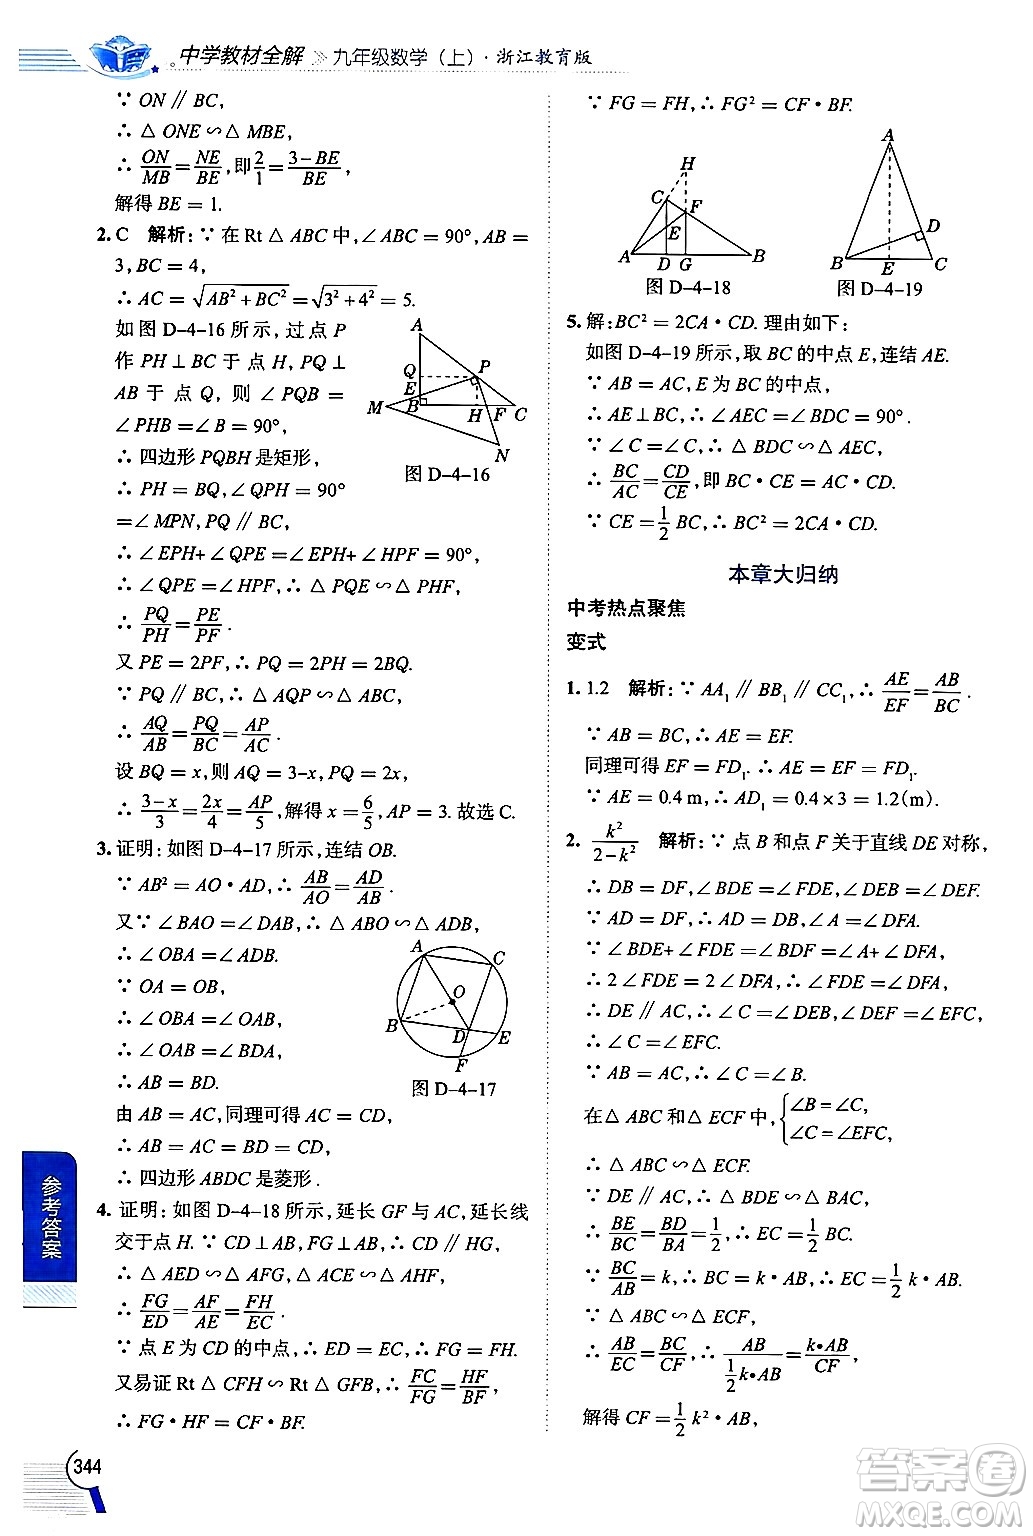 中学教材全解 九年级数学(上)·浙江教育版
∵ ON∥BC,
∴ △ONE∽△MBE,
∴ ON/MB=NE/BE,即2/1=(3-BE)/BE,
解得BE=1.
2.C 解析:∵ 在Rt△ABC中,∠ABC=90°,AB=
3,BC=4,
∴ AC=√(AB²+BC²)=√(3²+4²)=5.
如图D-4-16所示,过点P
作PH⊥BC于点H,PQ⊥
AB于点Q,则∠PQB=
∠PHB=∠B=90°,
∴ 四边形PQBH是矩形,
∴ PH=BQ,∠QPH=90°
=∠MPN,PQ∥BC,
A
Q
P
E
M
B
H
F
C
N
图D-4-16
∴ ∠EPH+∠QPE=∠EPH+∠HPF=90°,
∴ ∠QPE=∠HPF,∴ △PQE∽△PHF,
∴ PQ/PH=PE/PF.
又PE=2PF,∴ PQ=2PH=2BQ.
∵ PQ∥BC,∴ △AQP∽△ABC,
∴ AQ/AB=PQ/BC=AP/AC.
设BQ=x,则AQ=3-x,PQ=2x,
∴ (3-x)/3=2x/4=AP/5,解得x=6/5,AP=3.故选C.
3.证明:如图D-4-17所示,连结OB.
∵ AB²=AO·AD,∴ AB/AO=AD/AB.
又∵ ∠BAO=∠DAB,∴ △ABO∽△ADB,
∴ ∠OBA=∠ADB.
∵ OA=OB,
∴ ∠OBA=∠OAB,
∴ ∠OAB=∠BDA,
∴ AB=BD.
A
C
O
B
D
E
F
图D-4-17
由AB=AC,同理可得AC=CD,
∴ AB=AC=BD=CD,
∴ 四边形ABDC是菱形.
4.证明:如图D-4-18所示,延长GF与AC,延长线
交于点H.∵ CD⊥AB,∴ CD∥HG,
∴ △AED∽△AFG,△AEC∽△AHF,
∴ FG/ED=AF/AE=FH/EC.
∵ 点E为CD的中点,∴ ED=EC,∴ FG=FH.
又易证Rt△CFH∽Rt△GFB,∴ FC/FG=HF/BF,
∴ FG·HF=CF·BF.
∵ FG=FH,∴ FG²=CF·BF.
H
C
F
E
A
D
G
B
图D-4-18
A
D
B
E
C
图D-4-19
5.解:BC²=2CA·CD.理由如下:
如图D-4-19所示,取BC的中点E,连结AE.
∵ AB=AC,E为BC的中点,
∴ AE⊥BC,∴ ∠AEC=∠BDC=90°.
∵ ∠C=∠C,∴ △BDC∽△AEC,
∴ BC/AC=CD/CE,即BC·CE=AC·CD.
∵ CE=1/2 BC,∴ BC²=2CA·CD.
本章大归纳
中考热点聚焦
变式
1.1.2 解析:∵ AA₁∥BB₁∥CC₁,∴ AE/EF=AB/BC.
∵ AB=BC,∴ AE=EF.
同理可得EF=FD₁.∴ AE=EF=FD₁.
∵ AE=0.4 m,∴ AD₁=0.4×3=1.2(m).
2. k²/(2-k²) 解析:∵ 点B和点F关于直线DE对称,
∴ DB=DF,∠BDE=∠FDE,∠DEB=∠DEF.
∵ AD=DF,∴ AD=DB,∠A=∠DFA.
∵ ∠BDE+∠FDE=∠BDF=∠A+∠DFA,
∴ 2∠FDE=2∠DFA,∴ ∠FDE=∠DFA,
∴ DE∥AC,∴ ∠DEB=∠C,∠DEF=∠EFC,
∴ ∠C=∠EFC.
∵ AB=AC,∴ ∠C=∠B.
在△ABC和△ECF中,{∠B=∠C,
∠C=∠EFC,
∴ △ABC∽△ECF.
∵ DE∥AC,∴ △BDE∽△BAC,
∴ BE/BC=BD/BA=1/2,∴ EC=1/2 BC.
∵ BC/AB=k,∴ BC=k·AB,∴ EC=1/2 k·AB.
∵ △ABC∽△ECF,
∴ AB/EC=BC/CF,∴ AB/(1/2 k·AB)=k·AB/CF,
解得CF=1/2 k²·AB,
参考答案
344
答案圈
MXQE.COM